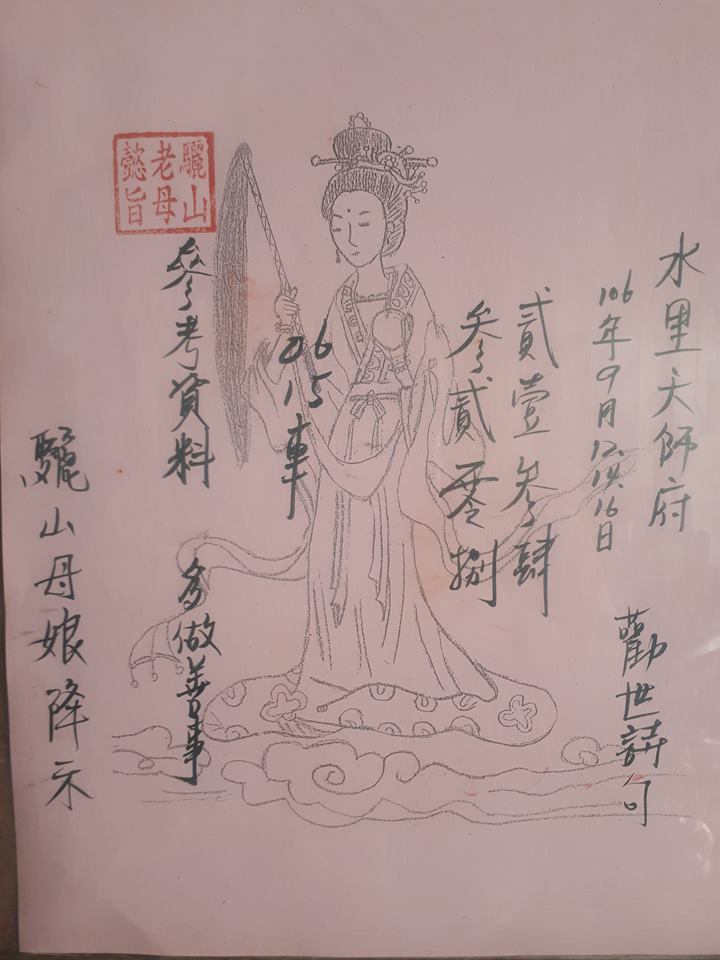 水里天師府
106年9月12.14.16日
勸世詩句
貳壹參肆
參貳零捌
06
15
車
參考資料
多做善事
驪山老母懿旨
驪山母娘降示